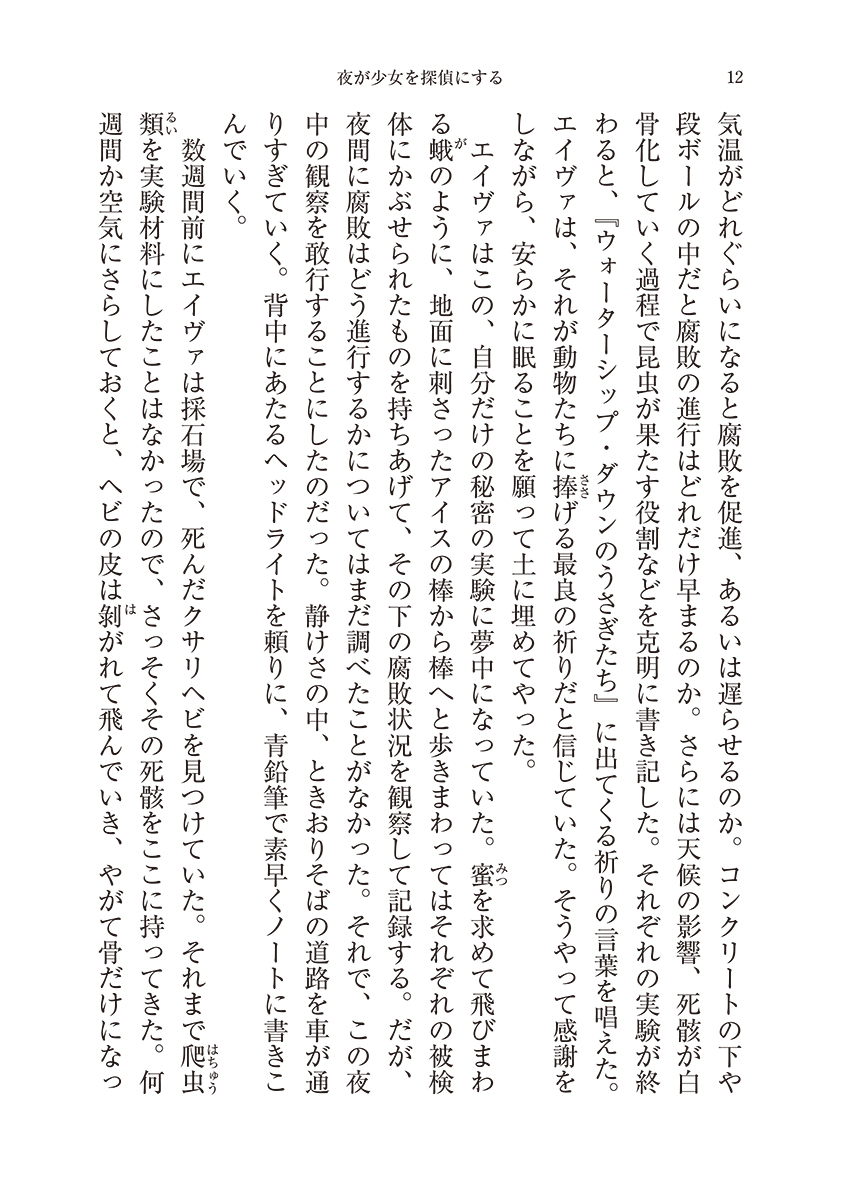 夜が少女を探偵にする
12
気温がどれぐらいになると腐敗を促進、あるいは遅らせるのか。コンクリートの下や
段ボールの中だと腐敗の進行はどれだけ早まるのか。さらには天候の影響、死骸が白
骨化していく過程で昆虫が果たす役割などを克明に書き記した。それぞれの実験が終
わると、『ウォーターシップ・ダウンのうさぎたち』に出てくる祈りの言葉を唱えた。
エイヴァは、それが動物たちに捧げる最良の祈りだと信じていた。そうやって感謝を
しながら、安らかに眠ることを願って土に埋めてやった。
　エイヴァはこの、自分だけの秘密の実験に夢中になっていた。蜜を求めて飛びまわ
る蛾のように、地面に刺さったアイスの棒から棒へと歩きまわってはそれぞれの被検
体にかぶせられたものを持ちあげて、その下の腐敗状況を観察して記録する。だが、
夜間に腐敗はどう進行するかについてはまだ調べたことがなかった。それで、この夜
中の観察を敢行することにしたのだった。静けさの中、ときおりそばの道路を車が通
りすぎていく。背中にあたるヘッドライトを頼りに、青鉛筆で素早くノートに書きこ
んでいく。
　数週間前にエイヴァは採石場で、死んだクサリヘビを見つけていた。それまで爬虫
類を実験材料にしたことはなかったので、さっそくその死骸をここに持ってきた。何
週間か空気にさらしておくと、ヘビの皮は剝がれて飛んでいき、やがて骨だけになっ